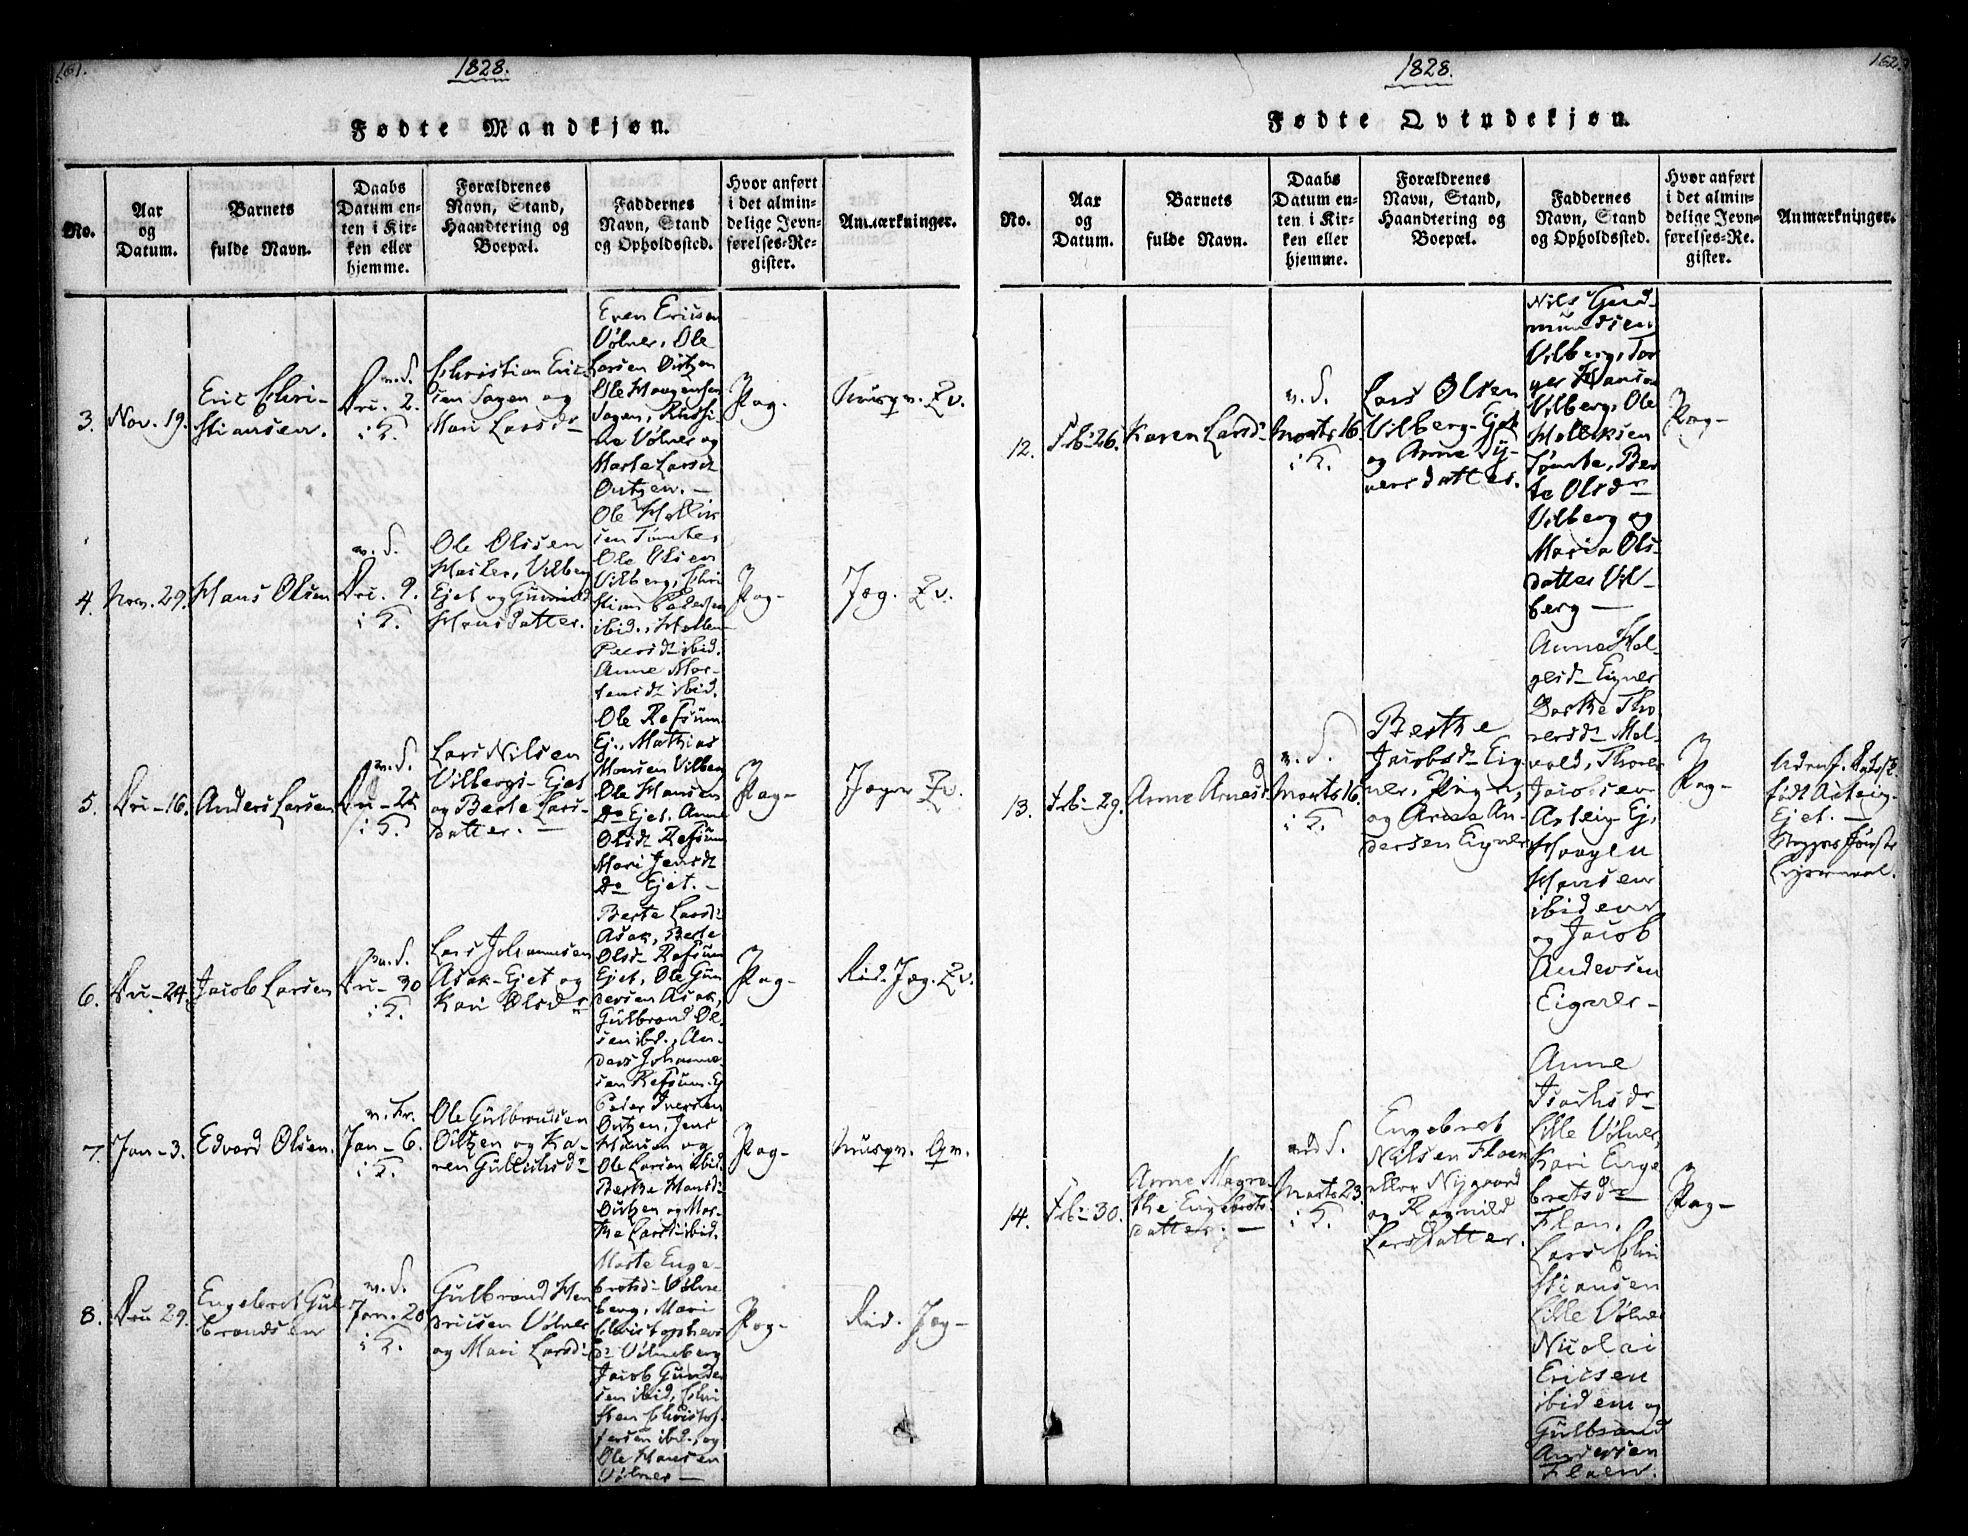 161.
1828.
Fødte Mandkjøn.
No.
Aar
og
Datum.
Barnets
fulde Navn.
Daabs
Datum en-
ten i Kir-
ken eller
hjemme.
Forældrenes
Navn, Stand,
Haandtering og
Boepæl.
Faddernes
Navn, Stand
og Opholdssted.
Hvor anført
i det almin-
delige Jevn-
førelses-Re-
gister.
Anmærkninger.
3.
Nov. 19.
Eric Chri-
stiansen.
Christian Eric-
sen Sagen og
Mari Larsdr
Even Ericsen
Vølner, Ole
Larsen Ourtzen
Ole Haagensen
Sagen,
Vølner og
Marte Larsd
Ourtzen. —
Pag.
4.
Nov. 29.
Hans Olsen
9.
Ole Olsen
Vilberg
Ejet og Gunild
Hansdatter.
Ole Hellik
sen Tømte,
Ole Olsen
Vilberg, Chri
stian Pedersen
ibid.,
Anne Mor-
tensdr ibid.
Pag-
5.
16.
Anders Larsen
Lars Nilsen
Vilbergs- Ejet
og Berte Lars-
datter. —
Ole Refsum
Ej., Mathias
Monsen Vilberg
Ole Hansen
Do Ejet. Anne
Olsdr Refsum
Mari Jensdr
Do Ejet. -
Pag-
6.
24.
Jacob Larsen
30
Lars Johannesen
Asak- Ejet og
Kari Olsdr
Berte Larsd-
Asak, Berte
Olsd- Refsum
Ejet, Ole Gun
dersen Asak,
Gulbrand Ol-
sen ibd., An-
ders Johanne
sen Refsum- Ej
Pag-
7.
Jan- 3.
Edvard Olsen.
Jan- 6.
Ole Gulbrandsen
Ourtzen og Ka-
ren Gulichsd-
Peder Iversen
Ourtzen, Jens
Hansen og
Ole Larsen ibid.
Berthe Hansd-
Ourtzen og Mar-
the Larsd- ibid.
Pag-
8.
29.
Engebret Gul
brandsen
Jan. 20
Gulbrand Hen
dricsen Vølner
og Mari Larsd-
Marte Enge-
bretsd- Vølne
berg, Mari
Christophers
d- Vølneberg
Jacob Gunder
sen ibid, Chri
sten Christof-
fersen ibd., og
Ole Hansen
Vølner —
Pag-
162.
1828.
Fødte Qvindekjøn.
No.
Aar
og
Datum.
Barnets
fulde Navn.
Daabs
Datum en-
ten i Kir-
ken eller
hjemme.
Forældrenes
Navn, Stand,
Haandtering og
Boepæl.
Faddernes
Navn, Stand
og Opholdssted.
Hvor anført
i det almin-
delige Jevn-
førelses-Re-
gister.
Anmærkninger.
12.
Feb- 26.
Karen Larsd-
Marts 16.
Lars Olsen
Vilberg- Ejet
og Anne Sy-
versdatter.
Nils Gud-
mundsen
Vilberg, Tor
ger Hansen
Vilberg, Ole
Helliksen
Tømte, Ber
te Olsdr
Vilberg og
Maria Ols-
datter Vil-
berg —
Pag-
13.
Feb- 29.
Anne Arnesd
Marts 16.
Berthe
Jacobsd- Eig-
ner, Pige,
og Arne An-
dersen Eigner
Anne Hel-
gesd- Eigner
Dorthe Tho
resd- Mel-
vold, Thorer
Jacobsen
Asteig- Ej.
Haagen
Hansen
ibidem
og Jacob
Andersen
Eigner-
Pag-
født Asteig-
Ejet. —
14.
Feb- 30.
Anne Magre-
the Engebrets-
datter. —
Marts 23.
Engebret
Nilsen Floen
eller Nygaard
og Ragnild
Larsdatter.
Anne
Isachsdr
Lille Vølner,
Kari Enge
bretsdr
Floen.
Lars Chri
stiansen
Lille Vølner
Nicolai
Ericsen
ibidem og
Gulbrand
Andersen
Floen.
Pag-